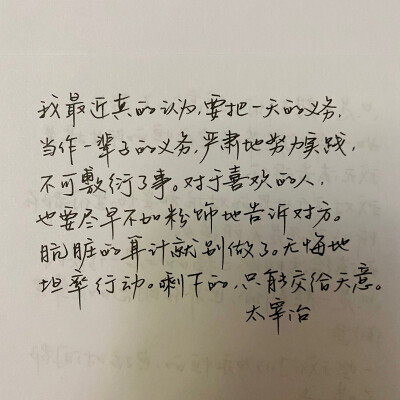 我最近真的认为,要把一天的义务,
当作一辈子的义务,严肃地努力实践,
不可敷衍了事。对于喜欢的人,
也要尽早不加粉饰地告诉对方。
肮脏的算计就别做了。无悔地
坦率行动。剩下的,只能交给天意。
太宰治